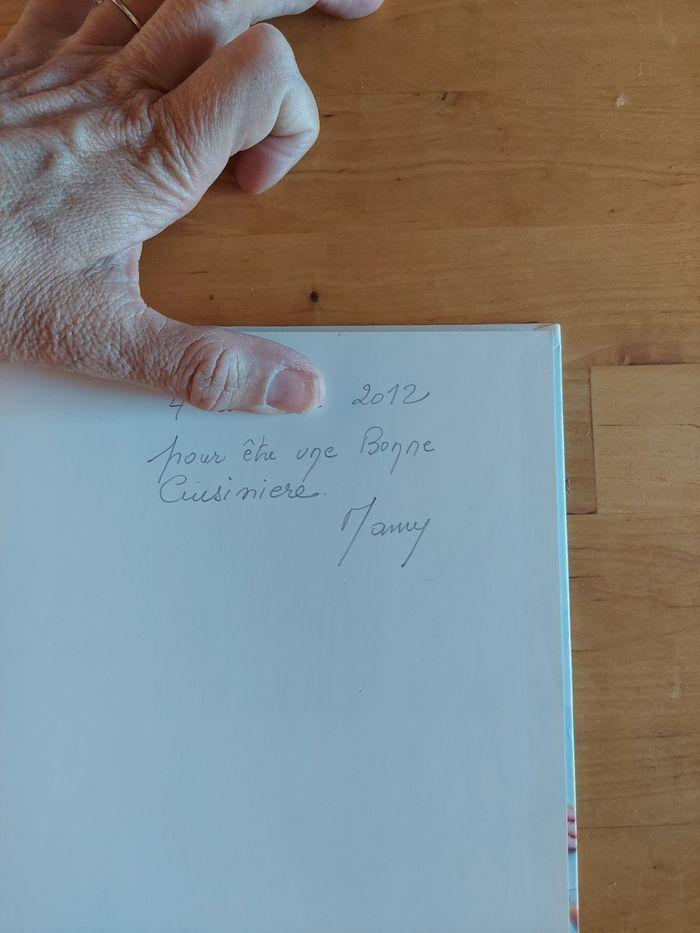 4 2012
pour être une Bonne
Cuisiniere.
Mamy